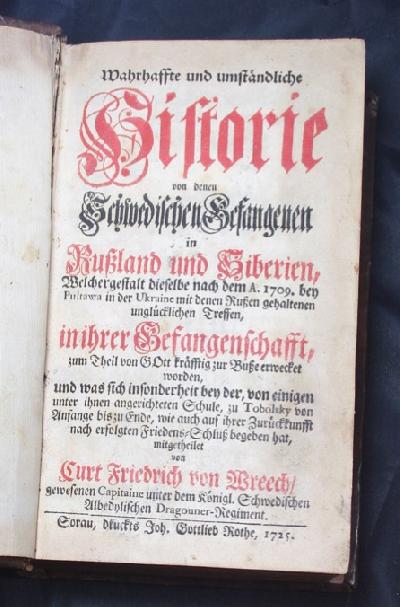 Wahrhaffte und umständliche
Historie
von denen
Schwedischen Gefangenen
in
Rußland und Siberien,
Welchergestalt dieselbe nach dem A. 1709. bey
Pultawa in der Ukraine mit denen Rußen gehaltenen
unglücklichen Treffen,
in ihrer Gefangenschafft,
zum Theil von GOtt kräfftig zur Buße erwecket
worden,
und was sich insonderheit bey der, von einigen
unter ihnen angerichteten Schule, zu Tobolsky von
Anfange bis zu Ende, wie auch auf ihrer Zurückkunfft
nach erfolgten Friedens-Schluß begeben hat,
mitgetheilet
von
Curt Friedrich von Wreech/
gewesenen Capitaine unter dem Königl. Schwedischen
Albedylischen Dragouner-Regiment.
Sorau, druckts Joh. Gottlieb Rothe, 1725.